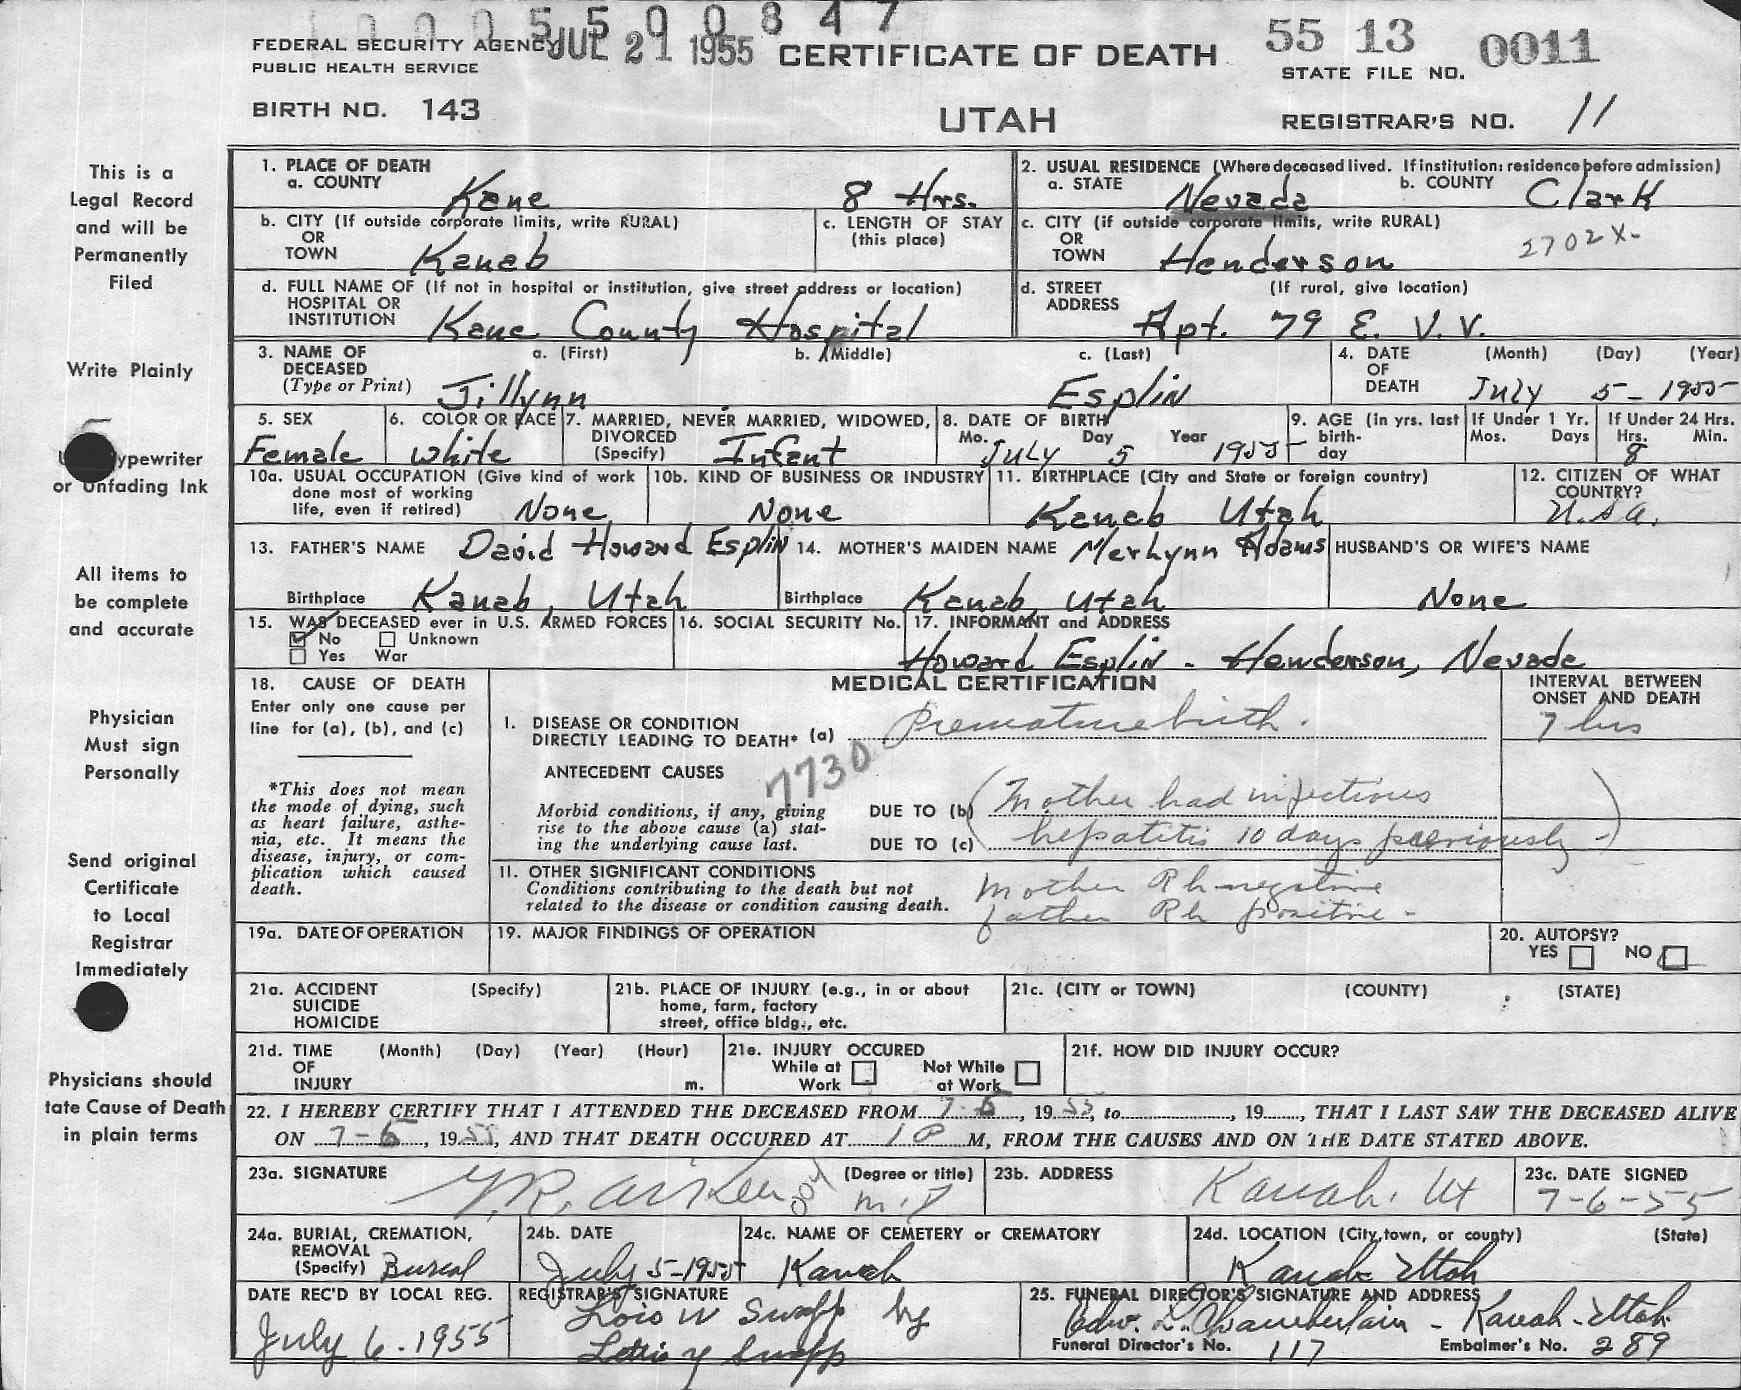 0005500847
FEDERAL SECURITY AGENCY JUL 21 1955 CERTIFICATE OF DEATH 55 13 0011
PUBLIC HEALTH SERVICE STATE FILE NO.
BIRTH NO. 143 UTAH REGISTRAR'S NO. 11
This is a
Legal Record
and will be
Permanently
Filed
Write Plainly
ypewriter
or Unfading Ink
All items to
be complete
and accurate
Physician
Must sign
Personally
Send original
Certificate
to Local
Registrar
Immediately
Physicians should
tate Cause of Death
in plain terms
1. PLACE OF DEATH
a. COUNTY Kane 8 Hrs.
2. USUAL RESIDENCE (Where deceased lived. If institution: residence before admission)
a. STATE Nevada b. COUNTY Clark
b. CITY (If outside corporate limits, write RURAL)
OR
TOWN Kanab
c. LENGTH OF STAY
(this place)
c. CITY (if outside corporate limits, write RURAL)
OR
TOWN Henderson 2702X-
d. FULL NAME OF (If not in hospital or institution, give street address or location)
HOSPITAL OR
INSTITUTION Kane County Hospital
d. STREET (If rural, give location)
ADDRESS Apt. 79 E. V.V.
3. NAME OF a. (First) b. (Middle) c. (Last)
DECEASED
(Type or Print) Jillynn Esplin
4. DATE (Month) (Day) (Year)
OF
DEATH July 5- 1955
5. SEX
Female
6. COLOR OR RACE
white
7. MARRIED, NEVER MARRIED, WIDOWED,
DIVORCED
(Specify) Infant
8. DATE OF BIRTH
Mo. Day Year
July 5 1955
9. AGE (in yrs. last
birth-
day
If Under 1 Yr.
Mos. Days
If Under 24 Hrs.
Hrs. Min.
8
10a. USUAL OCCUPATION (Give kind of work
done most of working
life, even if retired) None
10b. KIND OF BUSINESS OR INDUSTRY
None
11. BIRTHPLACE (City and State or foreign country)
Kanab Utah
12. CITIZEN OF WHAT
COUNTRY?
U.S.A.
13. FATHER'S NAME David Howard Esplin
Birthplace Kanab, Utah
14. MOTHER'S MAIDEN NAME Merlynn Adams
Birthplace Kanab, Utah
HUSBAND'S OR WIFE'S NAME
None
15. WAS DECEASED ever in U.S. ARMED FORCES
No Unknown
Yes War
16. SOCIAL SECURITY No.
17. INFORMANT and ADDRESS
Howard Esplin - Henderson, Nevada
18. CAUSE OF DEATH
Enter only one cause per
line for (a), (b), and (c)
*This does not mean
the mode of dying, such
as heart failure, asthe-
nia, etc. It means the
disease, injury, or com-
plication which caused
death.
MEDICAL CERTIFICATION
INTERVAL BETWEEN
ONSET AND DEATH
I. DISEASE OR CONDITION
DIRECTLY LEADING TO DEATH* (a) Premature birth. 7 hrs
7730
ANTECEDENT CAUSES
Morbid conditions, if any, giving
rise to the above cause (a) stat-
ing the underlying cause last.
DUE TO (b) (Mother had infectious
DUE TO (c) hepatitis 10 days previously-)
II. OTHER SIGNIFICANT CONDITIONS
Conditions contributing to the death but not
related to the disease or condition causing death.
Mother Rh negative
father Rh positive-
19a. DATE OF OPERATION
19. MAJOR FINDINGS OF OPERATION
20. AUTOPSY?
YES NO
21a. ACCIDENT (Specify)
SUICIDE
HOMICIDE
21b. PLACE OF INJURY (e.g., in or about
home, farm, factory
street, office bldg., etc.
21c. (CITY or TOWN) (COUNTY) (STATE)
21d. TIME (Month) (Day) (Year) (Hour)
OF
INJURY m.
21e. INJURY OCCURED
While at Not While
Work at Work
21f. HOW DID INJURY OCCUR?
22. I HEREBY CERTIFY THAT I ATTENDED THE DECEASED FROM 7-5, 1955, to , 19 , THAT I LAST SAW THE DECEASED ALIVE
ON 7-5, 1955, AND THAT DEATH OCCURED AT 1 P M, FROM THE CAUSES AND ON THE DATE STATED ABOVE.
23a. SIGNATURE (Degree or title)
Aiken 004 M.D
23b. ADDRESS
Kanab. Ut
23c. DATE SIGNED
7-6-55
24a. BURIAL, CREMATION,
REMOVAL
(Specify) Burial
24b. DATE
July 5-1955
24c. NAME OF CEMETERY or CREMATORY
Kanab
24d. LOCATION (City, town, or county) (State)
Kanab Utah
DATE REC'D BY LOCAL REG.
July 6-1955
REGISTRAR'S SIGNATURE
Lois W Swapp by
Swapp
25. FUNERAL DIRECTOR'S SIGNATURE AND ADDRESS
Edw. L. Chamberlain - Kanab-Utah
Funeral Director's No. 117 Embalmer's No. 289